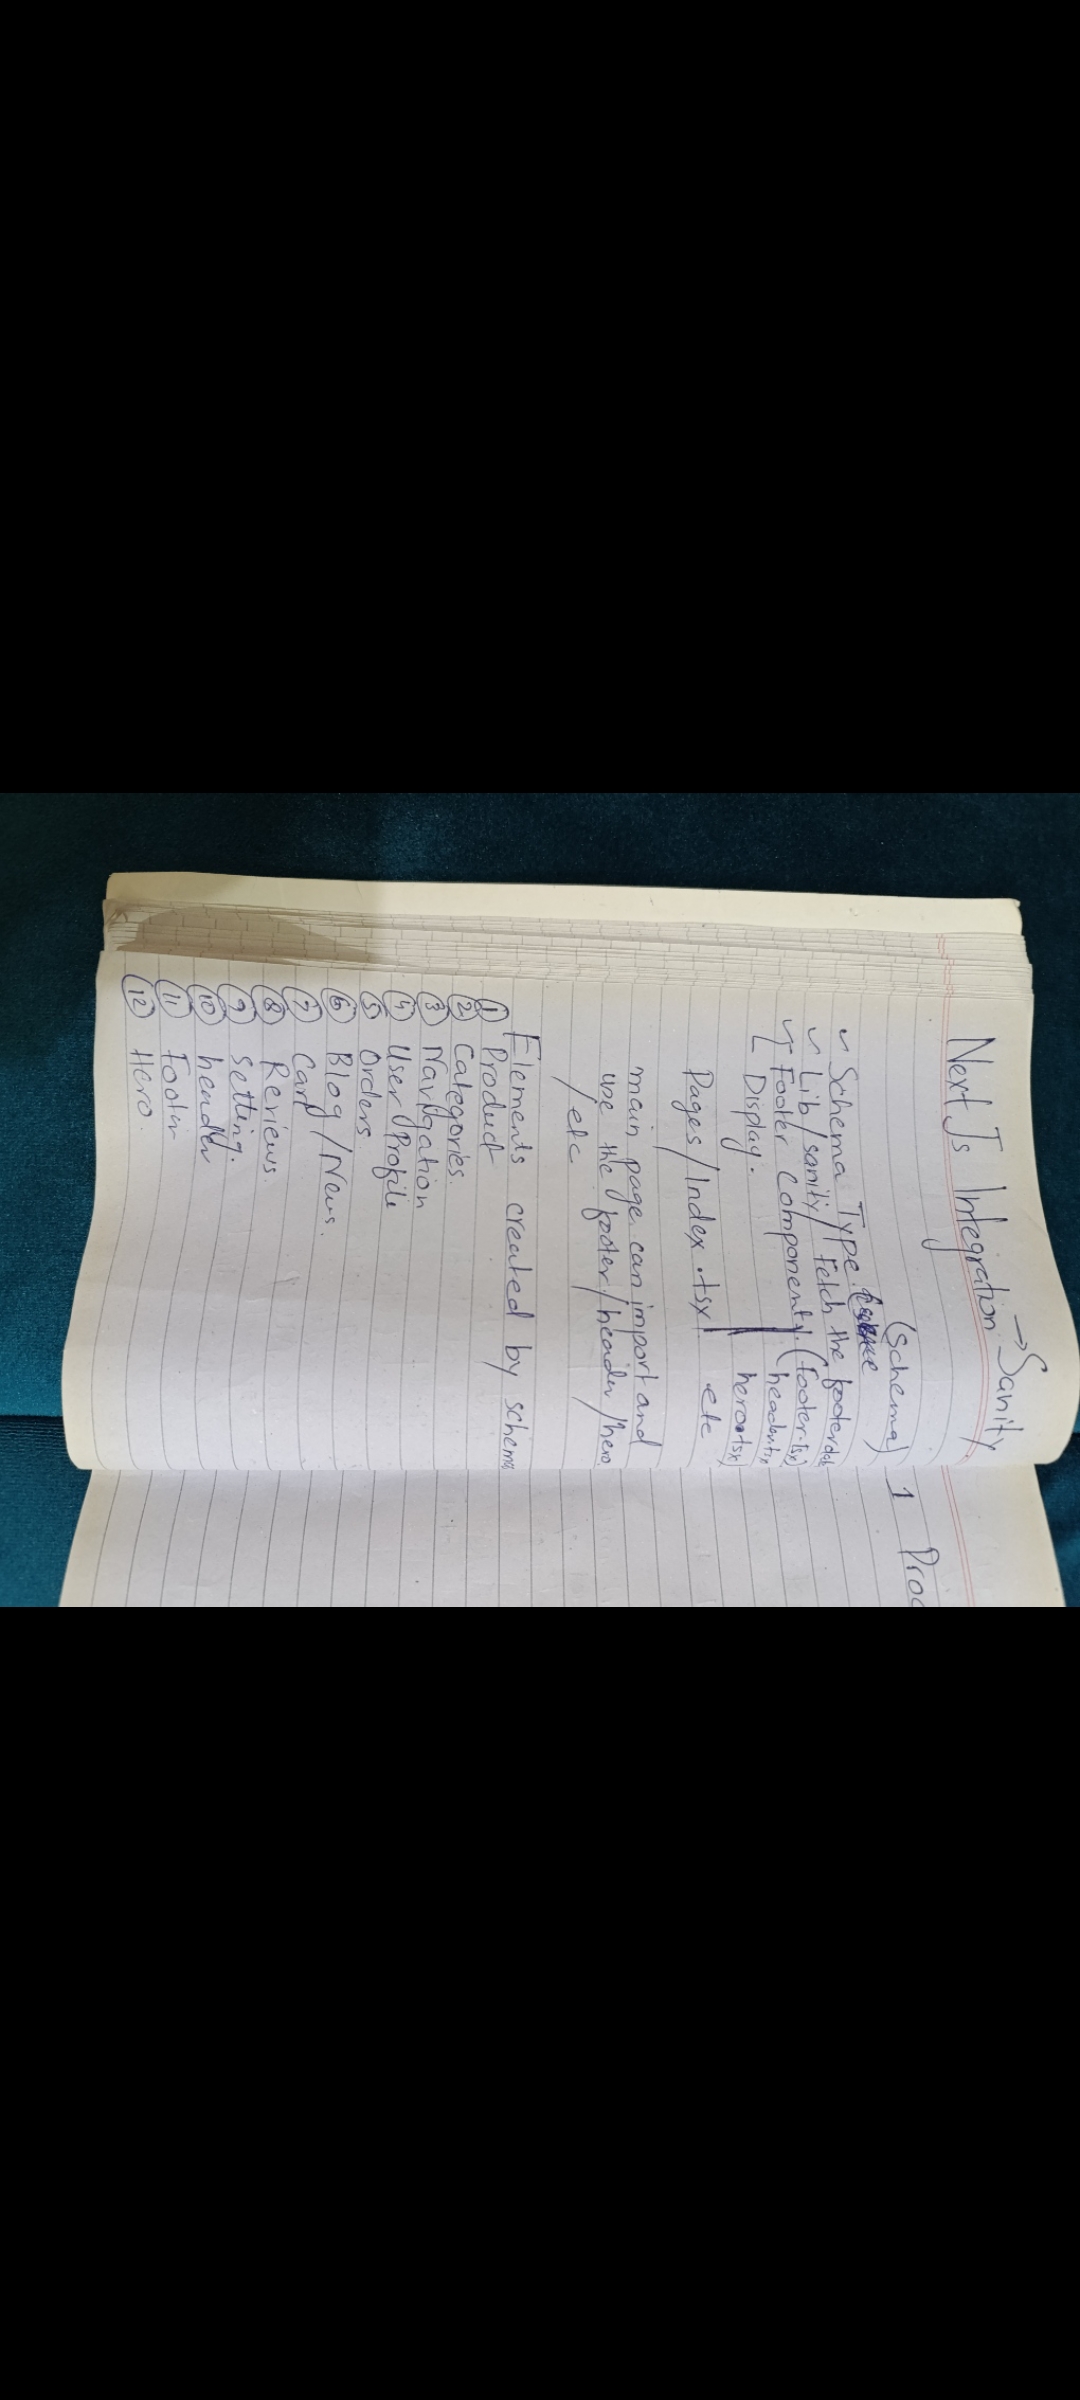 → Sanity
Next Js Integration.
(schema)
~ Schema Type.
~ Lib/sanity/Fetch the footerdata
~ Footer Component. (footer.tsx)
Display. (header.tsx
hero.tsx)
Pages/Index.tsx etc
main page can import and
use the footer/header/hero
/etc
Elements created by schema
① Product
② Categories.
③ Navigation
④ User Profile
⑤ Orders
⑥ Blog/News.
⑦ Cart
⑧ Reviews.
⑨ Setting.
⑩ header
⑪ Footer
⑫ Hero.
1